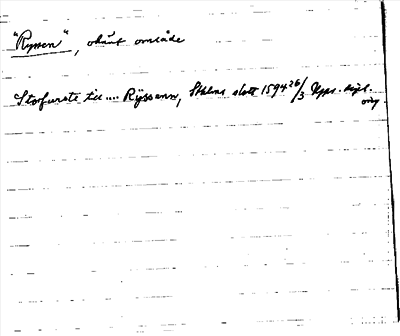 "Ryssen", okänt område
Storfurste till.... Ryssenn, Sthlms slott 1594 26/3 Upps. dipl.
orig